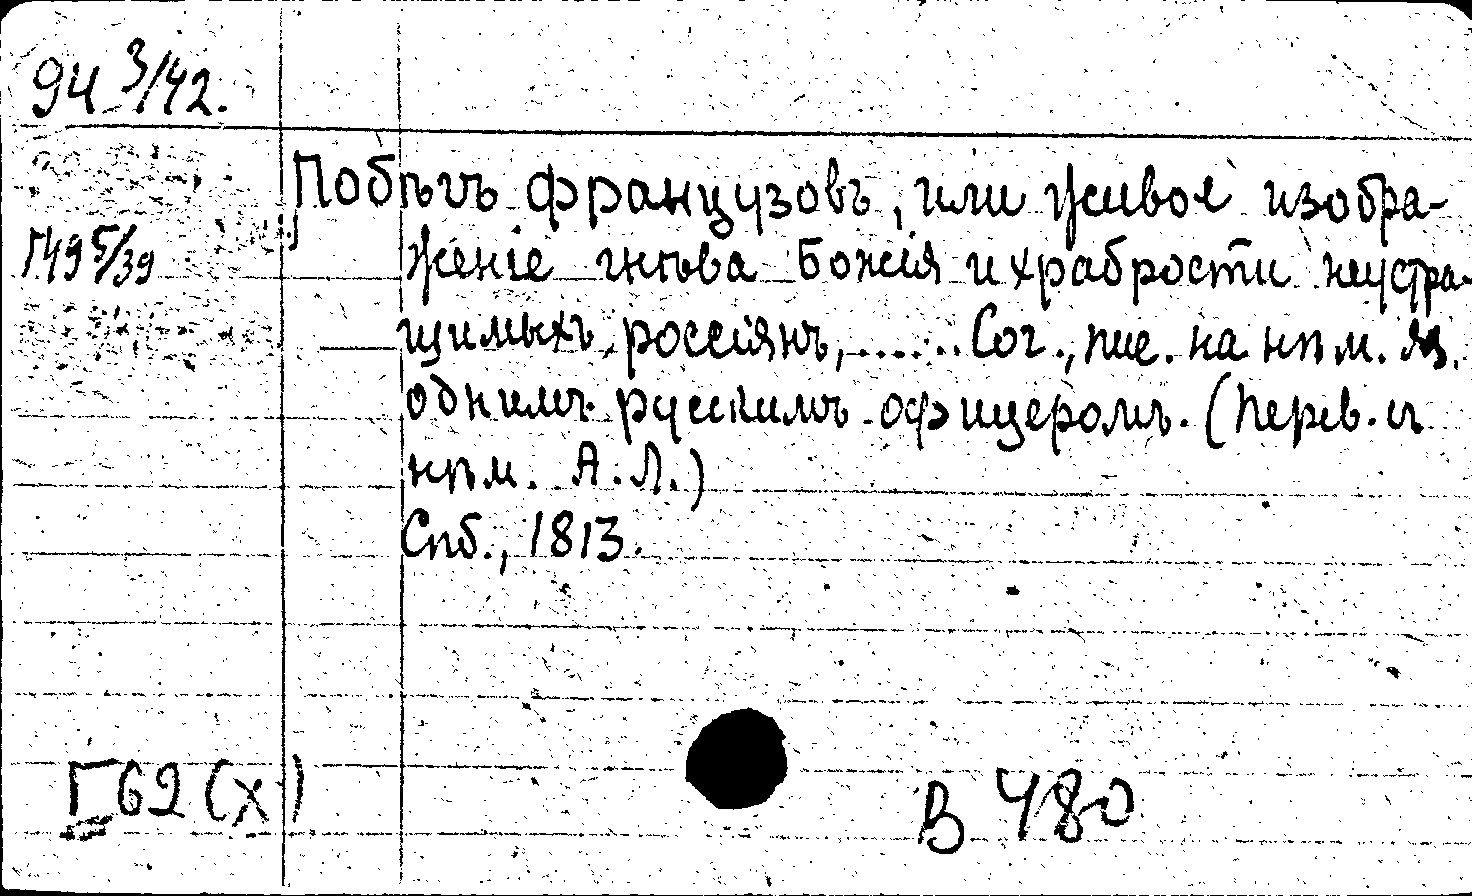 94 3/42.
Побѣгъ французовъ, или живое изобра-
Г49 5/39
женіе гнѣва Божія и храбрости неустра-
шимыхъ россіянъ,......Соч., пис. на нѣм. яз.
однимъ русскимъ офицеромъ. (Перев. съ
нѣм. А. Л.)
Спб., 1813.
Г62 (х)
В 480